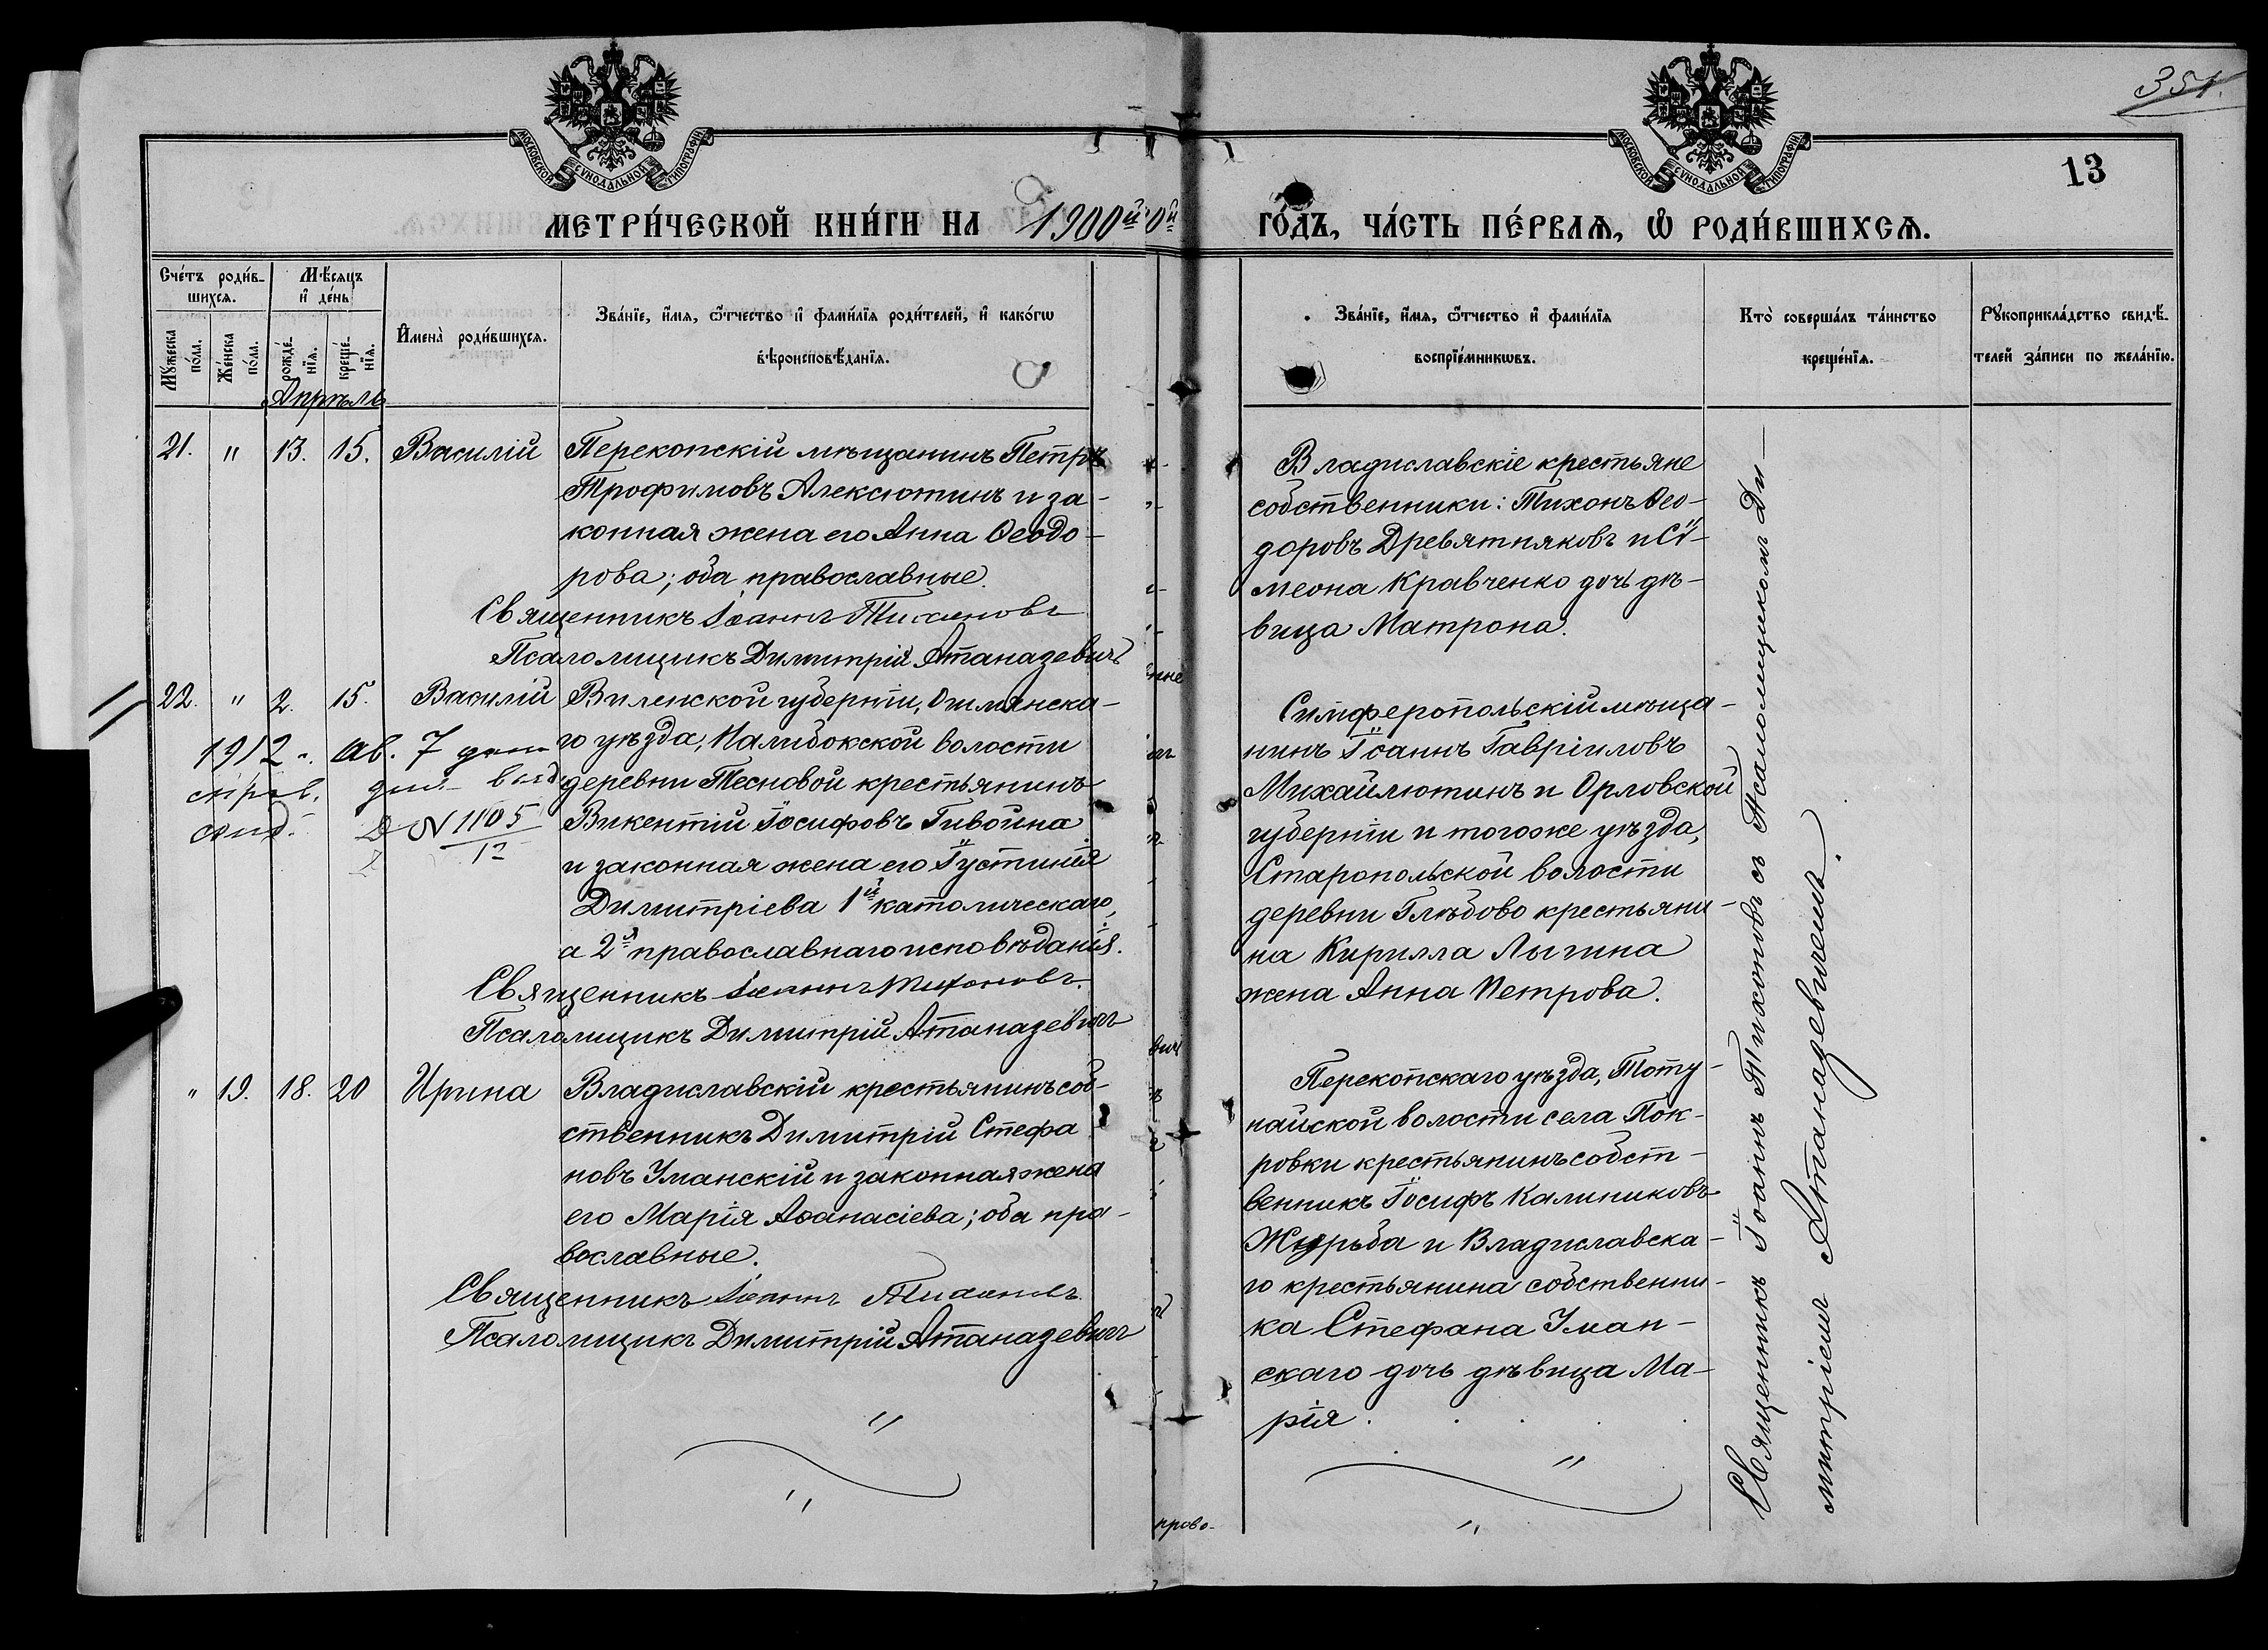 351.
13
МОСКОВСКОЙ СѴНОДАЛЬНОЙ ТИПОГРАФІИ
МОСКОВСКОЙ СѴНОДАЛЬНОЙ ТИПОГРАФІИ
МЕТРИ́ЧЕСКОЙ КНИ́ГИ НА 1900й
ГО́ДЪ, ЧА́СТЬ ПЕ́РВАѦ, Ѡ҆ РОДИ́ВШИХСѦ.
Сче́тъ роди́в-
шихсѧ.
Мѣ́сѧцъ
и҆ де́нь
Мꙋ́жеска
по́ла.
Же́нска
по́ла.
рожде́-
нїѧ.
креще́-
нїѧ.
И҆мена̀ роди́вшихсѧ.
Зва́нїе, и҆́мѧ, ѻ҆́тчество и҆ фами́лїѧ роди́телей, и҆ како́гѡ
вѣроисповѣ́данїѧ.
Зва́нїе, и҆́мѧ, ѻ҆́тчество и҆ фами́лїѧ
воспрїе́мникѡвъ.
Кто̀ соверша́лъ та́инство
креще́нїѧ.
Рꙋкоприкла́дство свидѣ́-
телей за́писи по жела́нїю.
Апрѣль
21. " 13. 15. Василій
Перекопскій мѣщанинъ Петръ
Трофимовъ Алексютинъ и за-
конная жена его Анна Ѳеодо-
рова; оба православные.
Священникъ Іоаннъ Тихоновъ
Псаломщикъ Димитрій Атаназевичъ
Владиславскіе крестьяне
собственники: Тихонъ Ѳео-
доровъ Древятняковъ и Сї-
меона Кравченко дочь дѣ-
вица Матрона.
22. " 2. 15. Василій
1912 г. Ав. 7 дня
№ 1105
Виленской губерніи, Ошмянска-
го уѣзда, Налибокской волости
деревни Тесновой крестьянинъ
Викентій Іосифовъ Гивойна
и законная жена его Іустинія
Димитріева 1й католическаго,
а 2я православнаго исповѣданія.
Священникъ Іоаннъ Тихоновъ.
Псаломщикъ Димитрій Атаназевичъ
Симферопольскій мѣща-
нинъ Іоаннъ Гавріиловъ
Михайлютинъ и Орловской
губерніи и того же уѣзда,
Старопольской волости
деревни Глѣбово крестьяни-
на Кирилла Лыгина
жена Анна Петрова.
" 19. 18. 20 Ирина
Владиславскій крестьянинъ соб-
ственникъ Димитрій Стефа
новъ Уманскій и законная жена
его Марія Аѳанасіева; оба пра-
вославные.
Священникъ Іоаннъ Тихоновъ
Псаломщикъ Димитрій Атаназевичъ
Перекопскаго уѣзда, Тоту-
найской волости села Пок-
ровки крестьянинъ собст-
венникъ Іосифъ Калиниковъ
Журьба и Владиславска-
го крестьянина собственни-
ка Стефана Уман-
скаго дочь дѣвица Ма-
рія.
Священникъ Іоаннъ Тихоновъ съ Псаломщикомъ Ди-
митріемъ Атаназевичемъ.